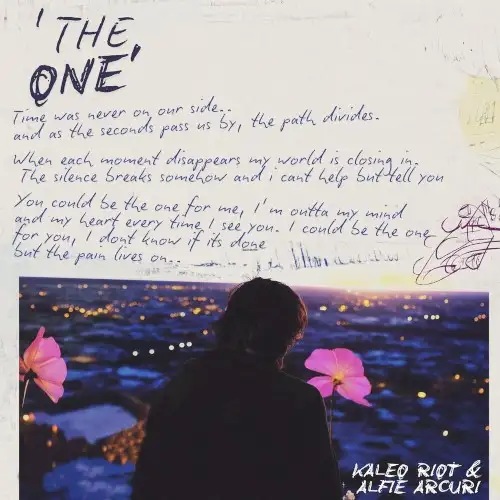 'THE
ONE'
Time was never on our side..
and as the seconds pass us by, the path divides.
When each moment disappears my world is closing in.
The silence breaks somehow and i cant help but tell you
You could be the one for me, I'm outta my mind
and my heart every time I see you. I could be the one
for you, I dont know if its done
but the pain lives on..
KALEO RIOT &
ALFIE ARCURI